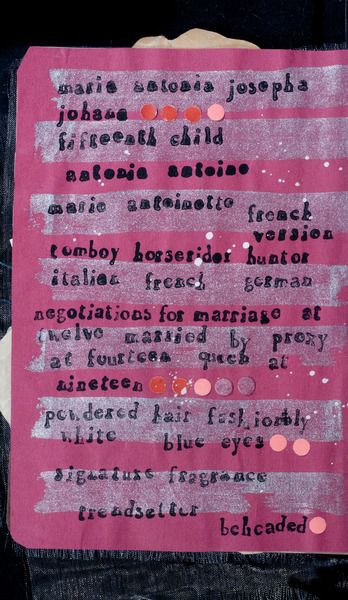 maria antonia josepha
johana
fifteenth child
antonia antoine
marie antoinette french
version
tomboy horserider hunter
italian french german
negotiations for marriage at
twelve married by proxy
at fourteen queen at
nineteen
powdered hair fashionbly
white blue eyes
signature fragrance
trendsetter
beheaded